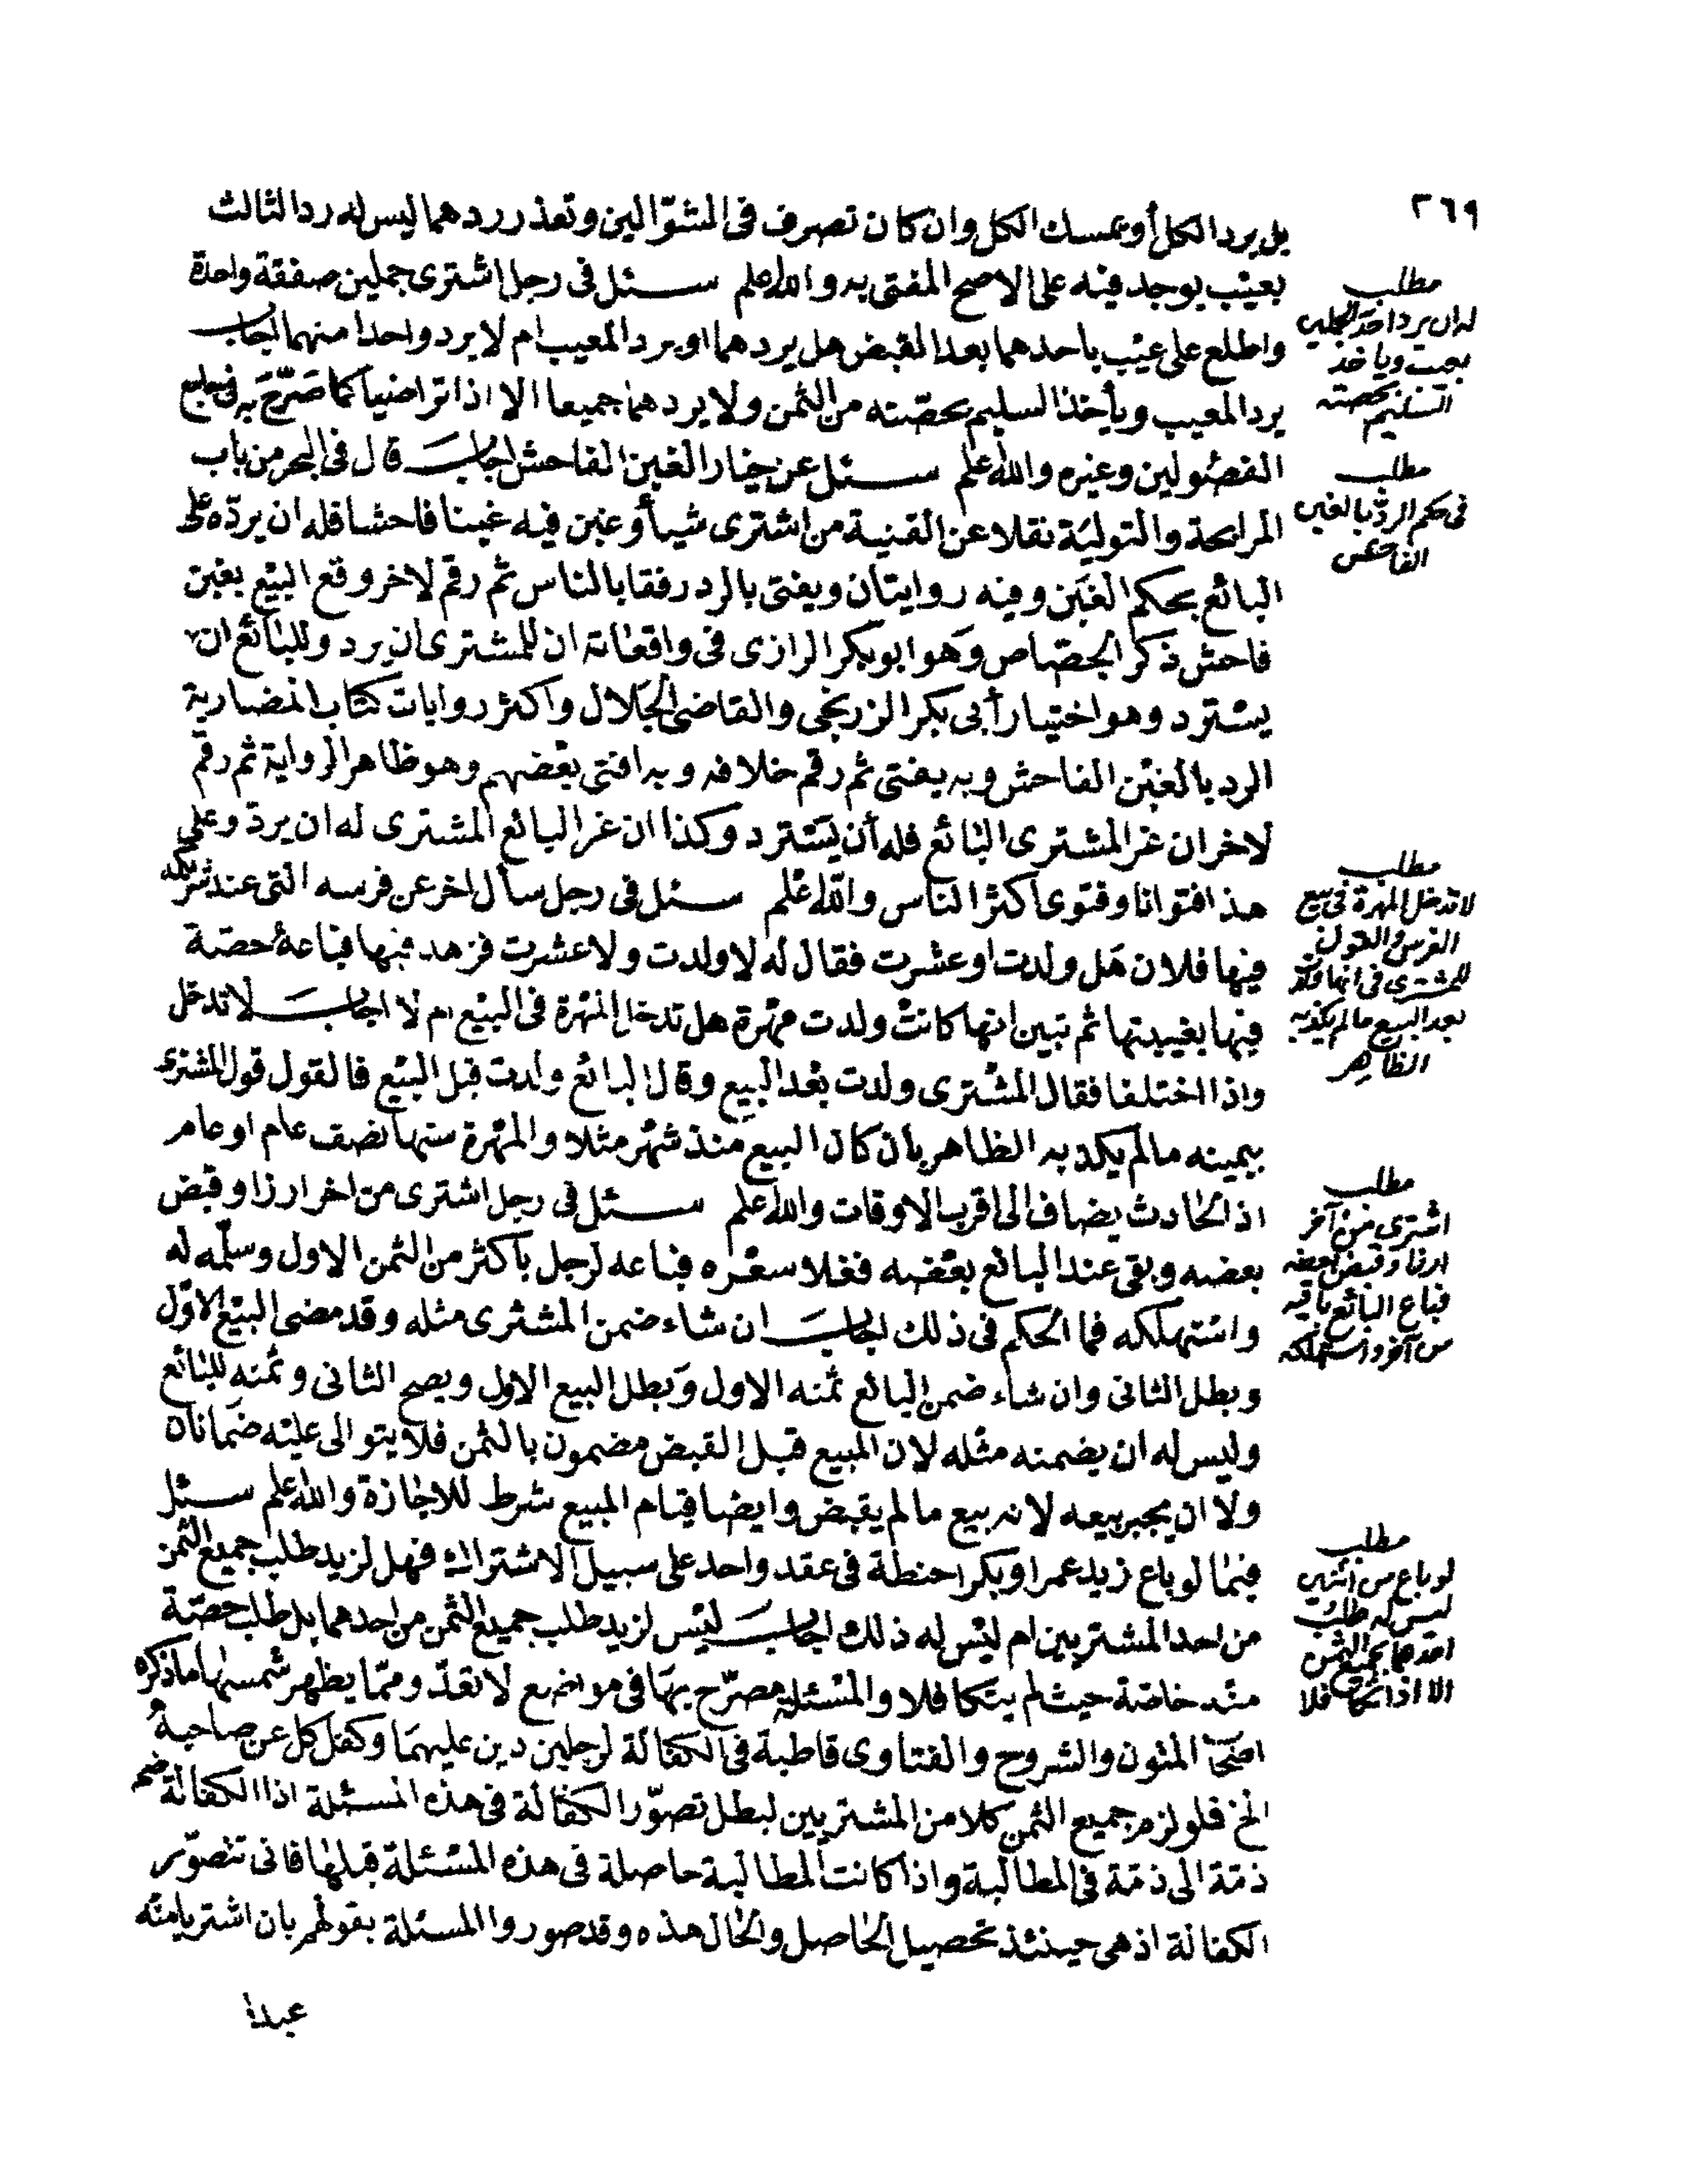 ٢٦٩
بل يرد الكل أو يمسك الكل وان كان تصرف فى المشوّالين وتعذر ردهما ليس له رد الثالث
بعيب يوجد فيه على الاصح المفتى به والله اعلم سئل فى رجل اشترى جملين صفقة واحدة
واطلع على عيب باحدهما بعد القبض هل يردهما او يرد المعيب ام لا يرد واحدا منهما اجاب
يرد المعيب ويأخذ السليم بحصته من الثمن ولا يردهما جميعا الا اذا تراضيا كما صَرّحَ به فى جامع
الفصولين وغيره والله اعلم سئل عن خيار الغبن الفاحش اجاب قال فى البحر من باب
المرابحة والتولية نقلا عن القنية من اشترى شيأ وغبن فيه غبنا فاحشا فله ان يردّه على
البائع بحكم الغبن وفيه روايتان ويفتى بالرد رفقا بالناس ثم رقم لاخر وقع البيع بغبن
فاحش ذكر الجصاص وهو ابو بكر الرازى فى واقعاته ان للمشترى ان يرد وللبائع ان
يسترد وهو اختيار أبى بكر الزرنجى والقاضى الجلال واكثر روايات كتاب المضاربة
الرد بالغبن الفاحش وبه يفتى ثم رقم خلافه وبه افتى بعضهم وهو ظاهر الرواية ثم رقم
لاخر ان غر المشترى البائع فله أن يسترد وكذا ان غر البائع المشترى له ان يرد وعلى
هذا فتوانا وفتوى اكثر الناس والله اعلم سئل فى رجل سأل اخر عن فرسه التى عند شريكه
فيها فلان هل ولدت او عشرت فقال له لا ولدت ولا عشرت فزهد فيها فباعهُ حصته
فيها بغيبتها ثم تبين انها كانت ولدت مهرة هل تدخل المهرة فى البيع ام لا اجاب لا تدخل
واذا اختلفا فقال المشترى ولدت بعد البيع وقال البائع ولدت قبل البيع فالقول قول المشترى
بيمينه مالم يكذبه الظاهر بان كان البيع منذ شهر مثلا والمهرة سنها نصف عام او عام
اذ الحادث يضاف الى اقرب الاوقات والله اعلم سئل فى رجل اشترى من اخر ارزا وقبض
بعضه وبقى عند البائع بعضه فغلا سعره فباعه لرجل باكثر من الثمن الاول وسلّمه له
واستهلكه فما الحكم فى ذلك اجاب ان شاء ضمن المشترى مثله وقد مضى البيع الاوّل
وبطل الثانى وان شاء ضمن البائع ثمنه الاول وبطل البيع الاول ويصح الثانى وثمنه للبائع
وليس له ان يضمنه مثله لان المبيع قبل القبض مضمون بالثمن فلا يتوالى عليه ضمانان
ولا ان يجيز بيعه لانه بيع مالم يقبض وايضا قيام المبيع شرط للاجازة والله اعلم سئل
فيما لو باع زيد عمرا وبكرا حنطة فى عقد واحد على سبيل الاشتراك فهل لزيد طلب جميع الثمن
من احد المشتريين ام ليس له ذلك اجاب ليس لزيد طلب جميع الثمن من احدهما بل طلب حصته
منه خاصة حيث لم يتكافلا والمسئلة مصرّح بها فى مواضع لا تعدّ ومما يظهر شمسها ما ذكره
اصحاب المتون والشروح والفتاوى قاطبة فى الكفالة لرجلين دين عليهما وكفل كل عن صاحبهُ
الخ فلو لزم جميع الثمن كلا من المشتريين لبطل تصوّر الكفالة فى هذه المسئلة اذ الكفالة ضم
ذمّة الى ذمّة فى المطالبة واذا كانت المطالبة حاصلة فى هذه المسئلة قبلها فانى تتصوّر
الكفالة اذ هى حينئذ تحصيل الحاصل والحال هذه وقد صوروا المسئلة بقولهم بان اشتريا منه
مطلب
له ان يرد احد الجملين
بعيب وياخذ
السليم بحصته
مطلب
فى حكم الرد بالغبن
الفاحش
مطلب
لا تدخل المهرة فى بيع
الفرس والقول
للمشترى فى انها ولدت
بعد البيع مالم يكذبه
الظاهر
مطلب
اشترى من آخر
ارزا وقبض بعضه
فباع البائع باقيه
من آخر واستهلكه
مطلب
لو باع من اثنين
ليس له طلب
احدهما بجميع الثمن
الا اذا تكافلا